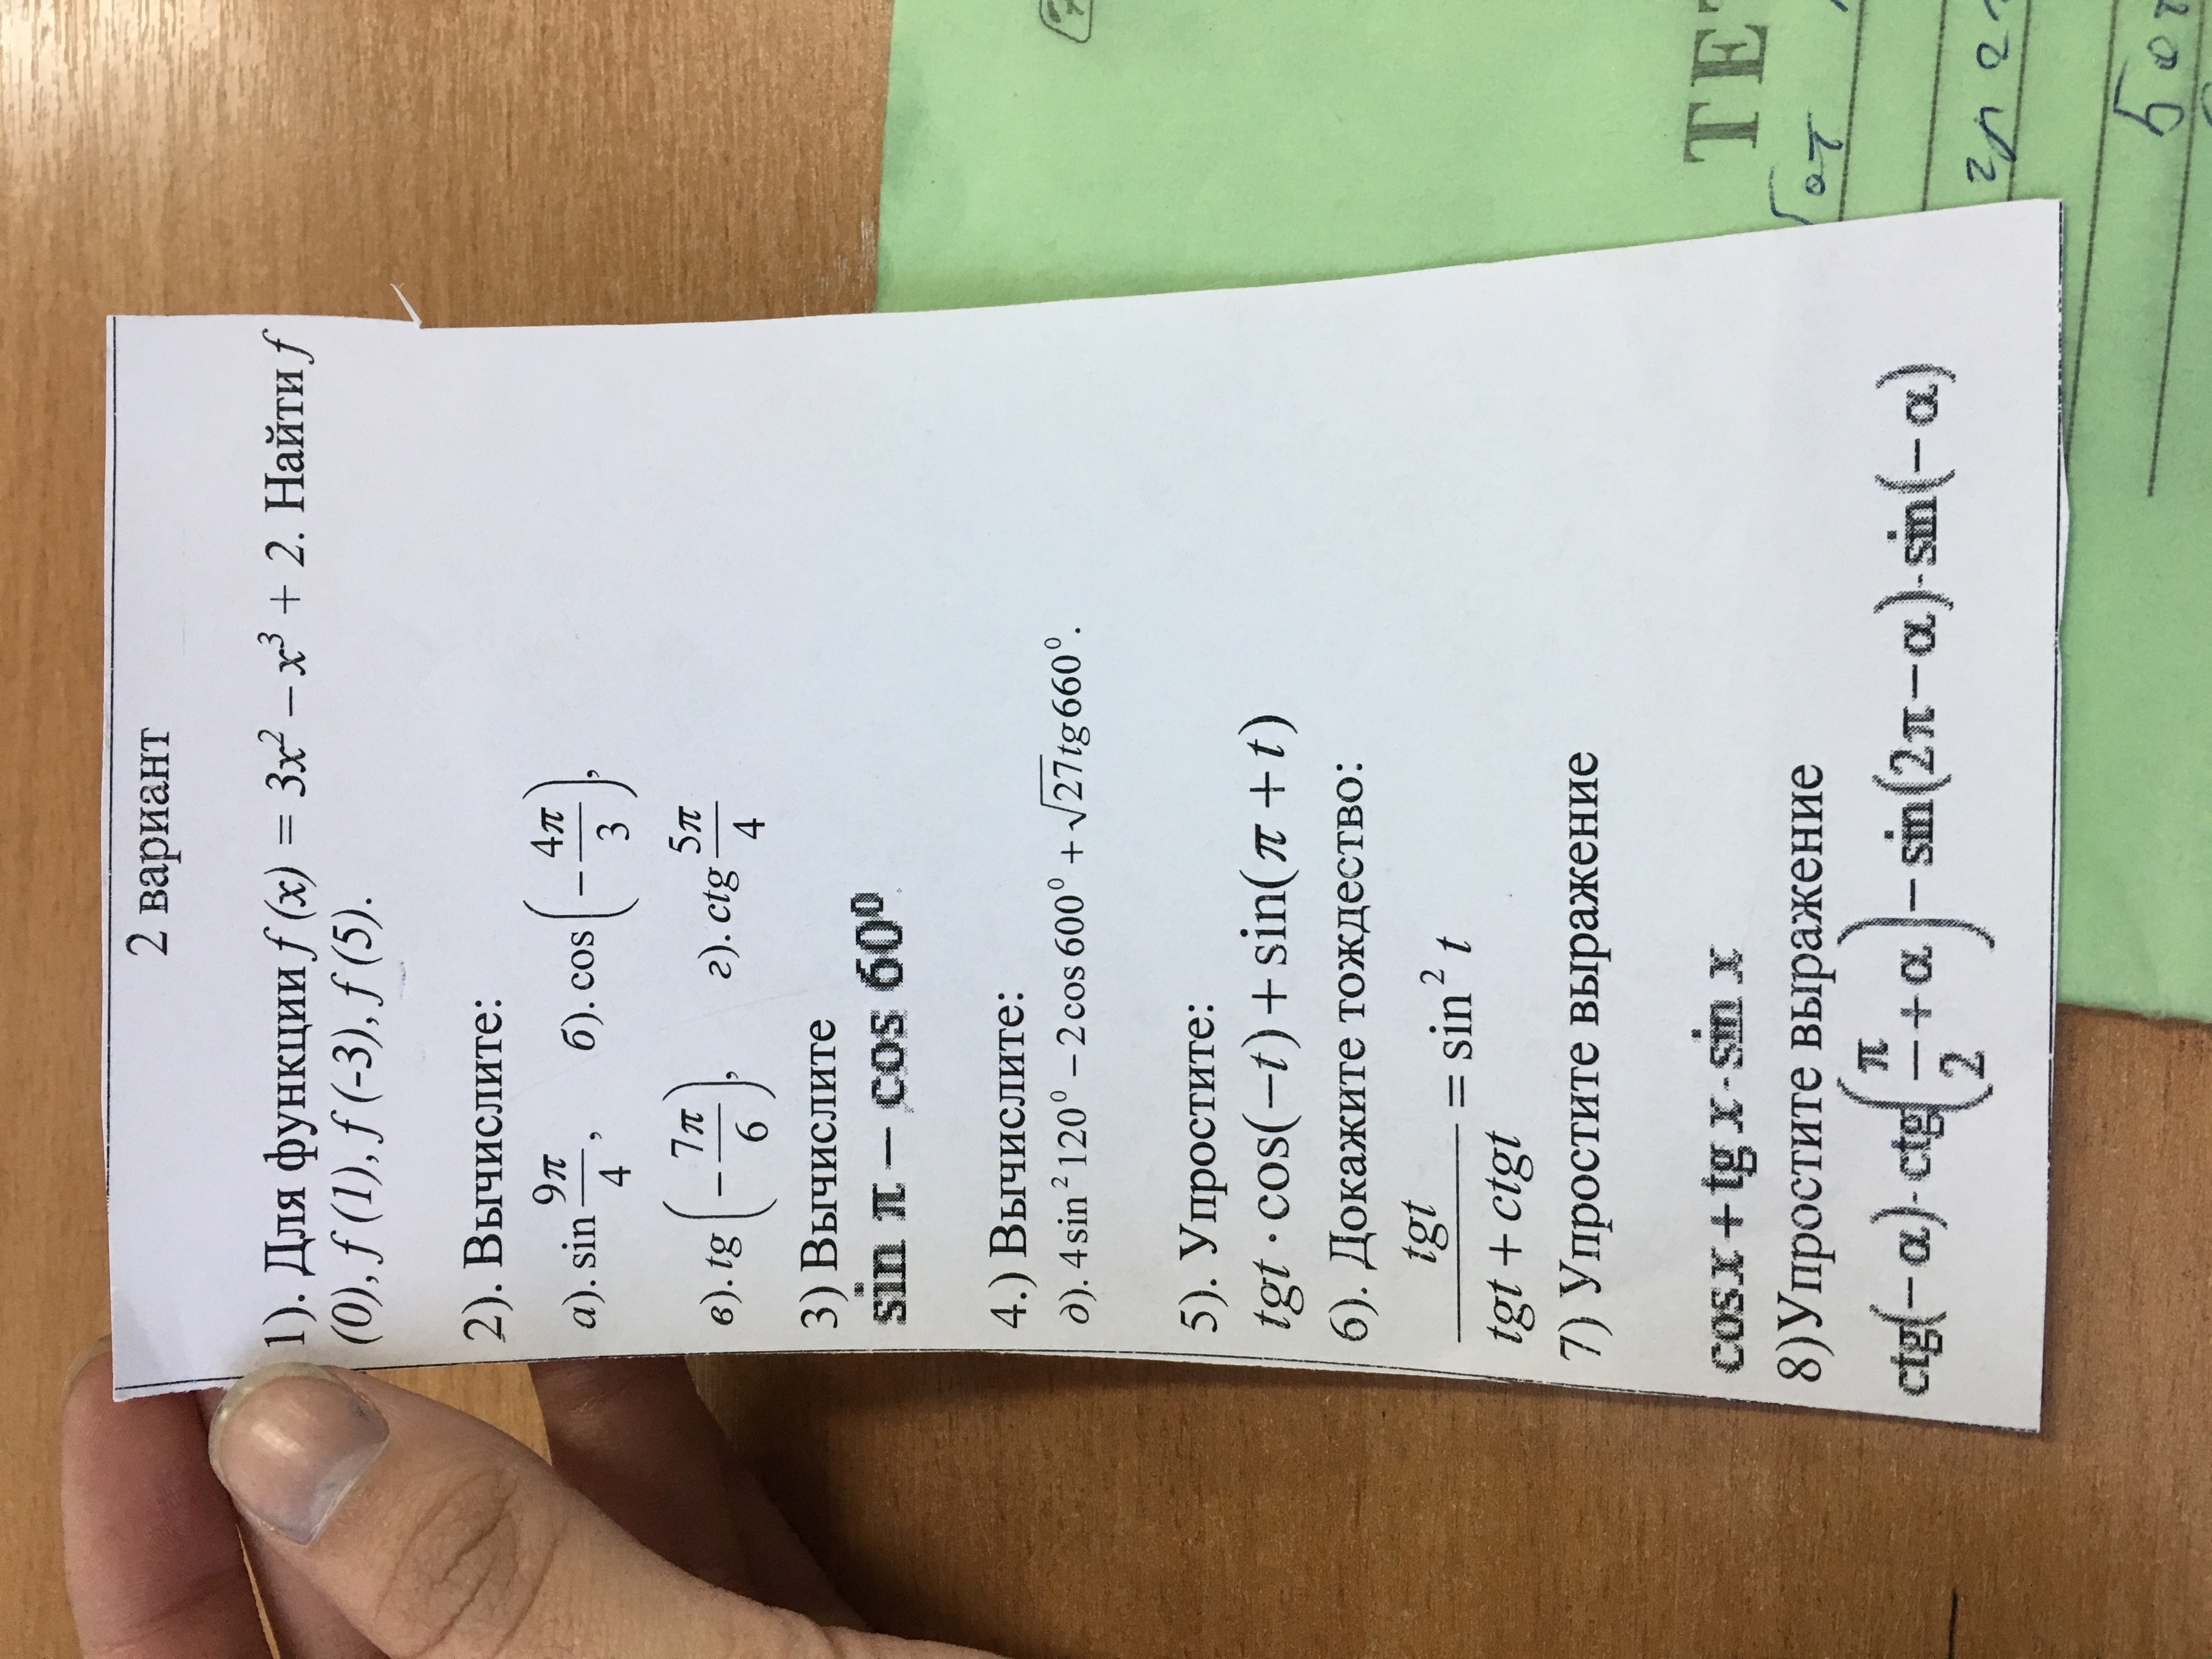 2 вариант
1). Для функции f (x) = 3x² – x³ + 2. Найти f
(0), f (1), f (-3), f (5).
2). Вычислите:
а). sin 9π/4 , б). cos(−4π/3),
в). tg(−7π/6), г). ctg 5π/4
3) Вычислите
sin π − cos 60⁰
4.) Вычислите:
д). 4sin² 120⁰ − 2cos 600⁰ + √27tg660⁰.
5). Упростите:
tgt · cos(−t) + sin(π + t)
6). Докажите тождество:
tgt/(tgt + ctgt) = sin² t
7) Упростите выражение
cos x + tg x · sin x
8)Упростите выражение
ctg(− α) · ctg(π/2 + α) − sin(2π − α) · sin(− α)
ТЕТ